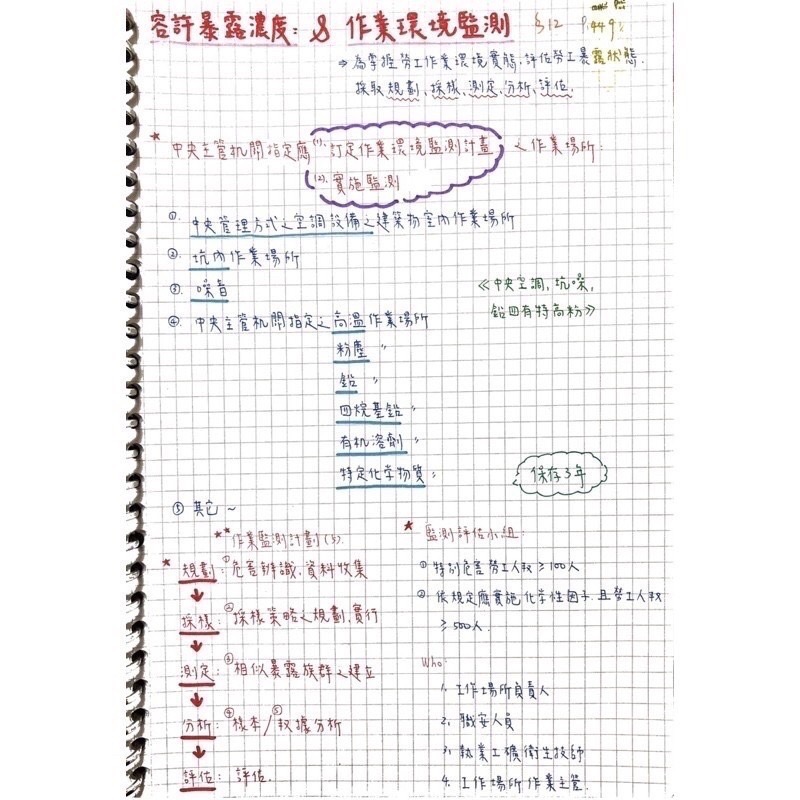 容許暴露濃度: & 作業環境監測 §12 P.449
→ 為掌握勞工作業環境實態,評估勞工暴露狀態.
採取規劃、採樣、測定、分析、評估.
* 中央主管机關指定應 (1). 訂定作業環境監測計畫 之作業場所:
(2). 實施監測
①. 中央管理方式之空調設備之建築物室內作業場所
②. 坑內作業場所
③. 噪音
④. 中央主管机關指定之高溫作業場所
粉塵 〃
鉛 〃
四烷基鉛 〃
有机溶劑 〃
特定化学物質 〃
《中央空調,坑噪,
鉛四有特高粉》
保存3年
⑤ 其它~
** 作業監測計劃(5).
* 規劃: ①危害辨識,資料收集
↓
採樣: ②採樣策略之規劃,實行
↓
測定: ③相似暴露族群之建立
↓
分析: ④樣本/⑤數據分析
↓
評估: 評估.
* 監測評估小組:
① 特別危害勞工人數≥100人
② 依規定應實施化學性因子,且勞工人數
≥500人.
Who:
1. 工作場所負責人
2. 職安人員
3. 執業工礦衛生技師
4. 工作場所作業主管.